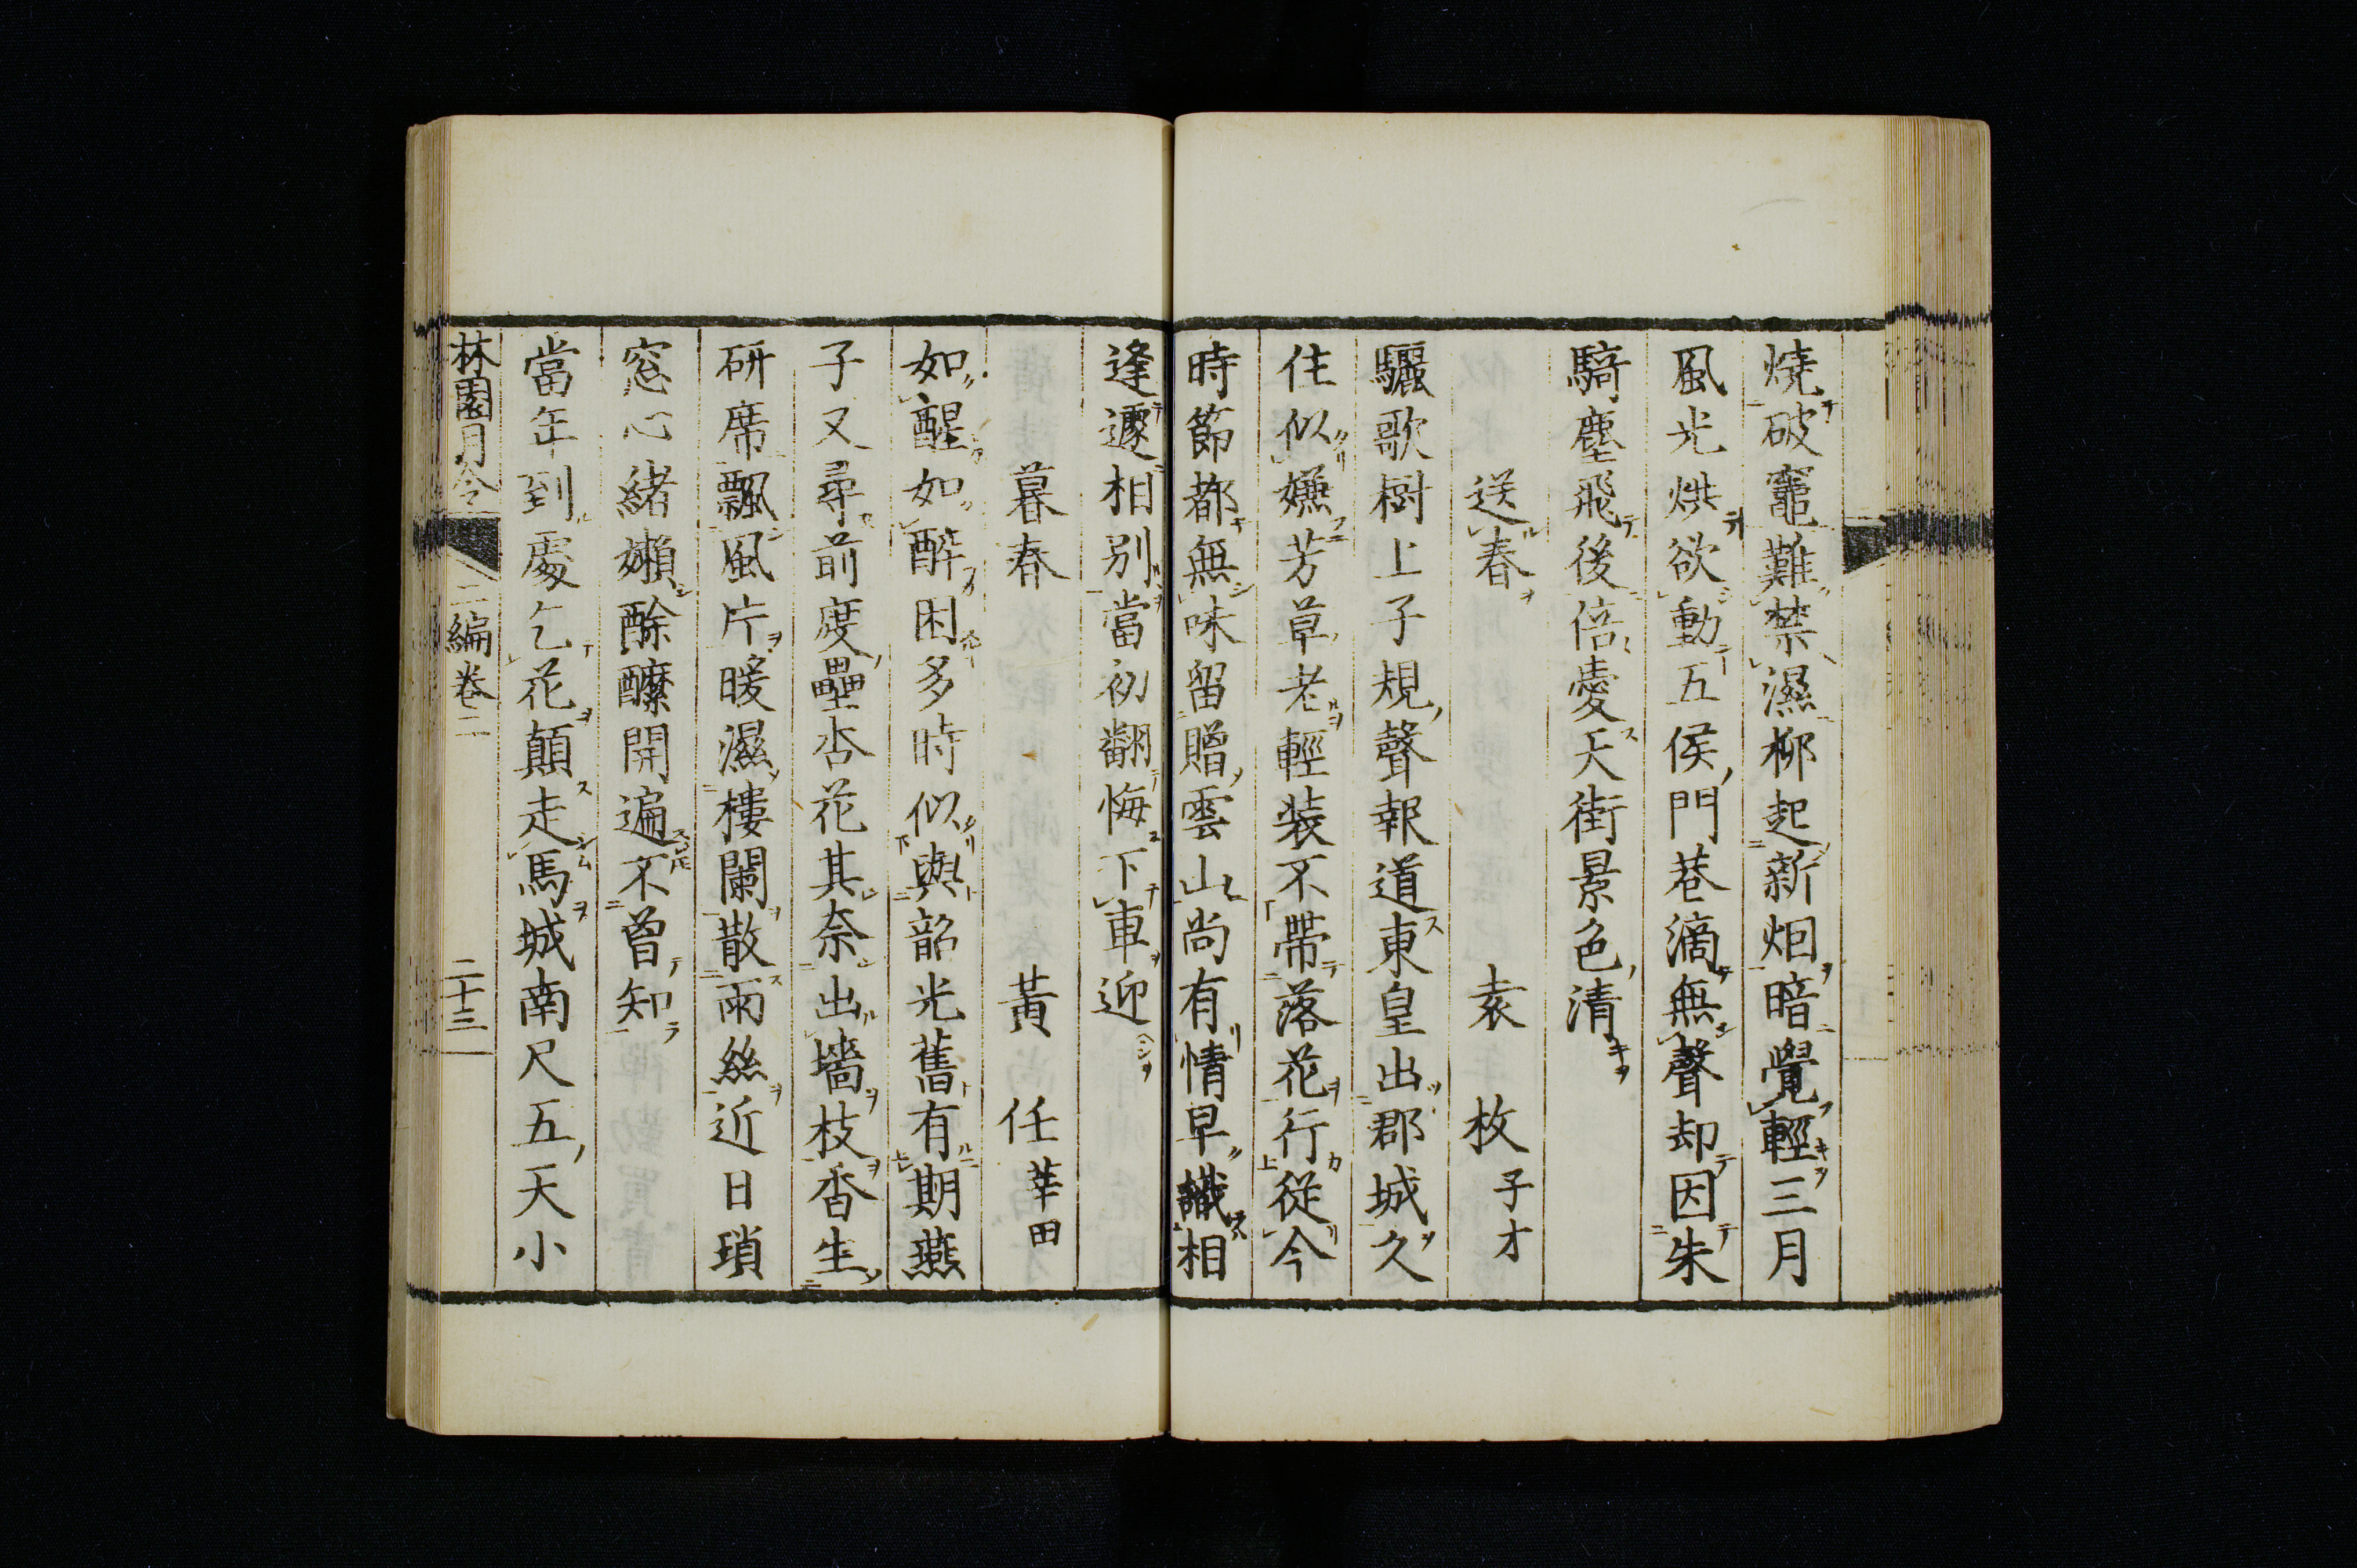 燒破竈難禁濕柳起新烟暗覺輕三月
風光烘欲動五侯門巷滴無聲却因朱
騎塵飛後倍愛天街景色清
送春 袁枚子才
驪歌樹上子規聲報道東皇出郡城久
住似嫌芳草老輕裝不帶落花行從今
時節都無味留贈雲山尚有情早識相
逢遽相別當初翻悔下車迎
暮春 黃任莘田
如醒如醉困多時似與韶光舊有期燕
子又尋前度壘杏花其奈出墻枝香生
研席飄風片暖濕樓闌散雨絲近日瑣
窓心緒嬾酴醾開遍不曾知
當年到處乞花顛走馬城南尺五天小
林園月令 二編卷二 二十三